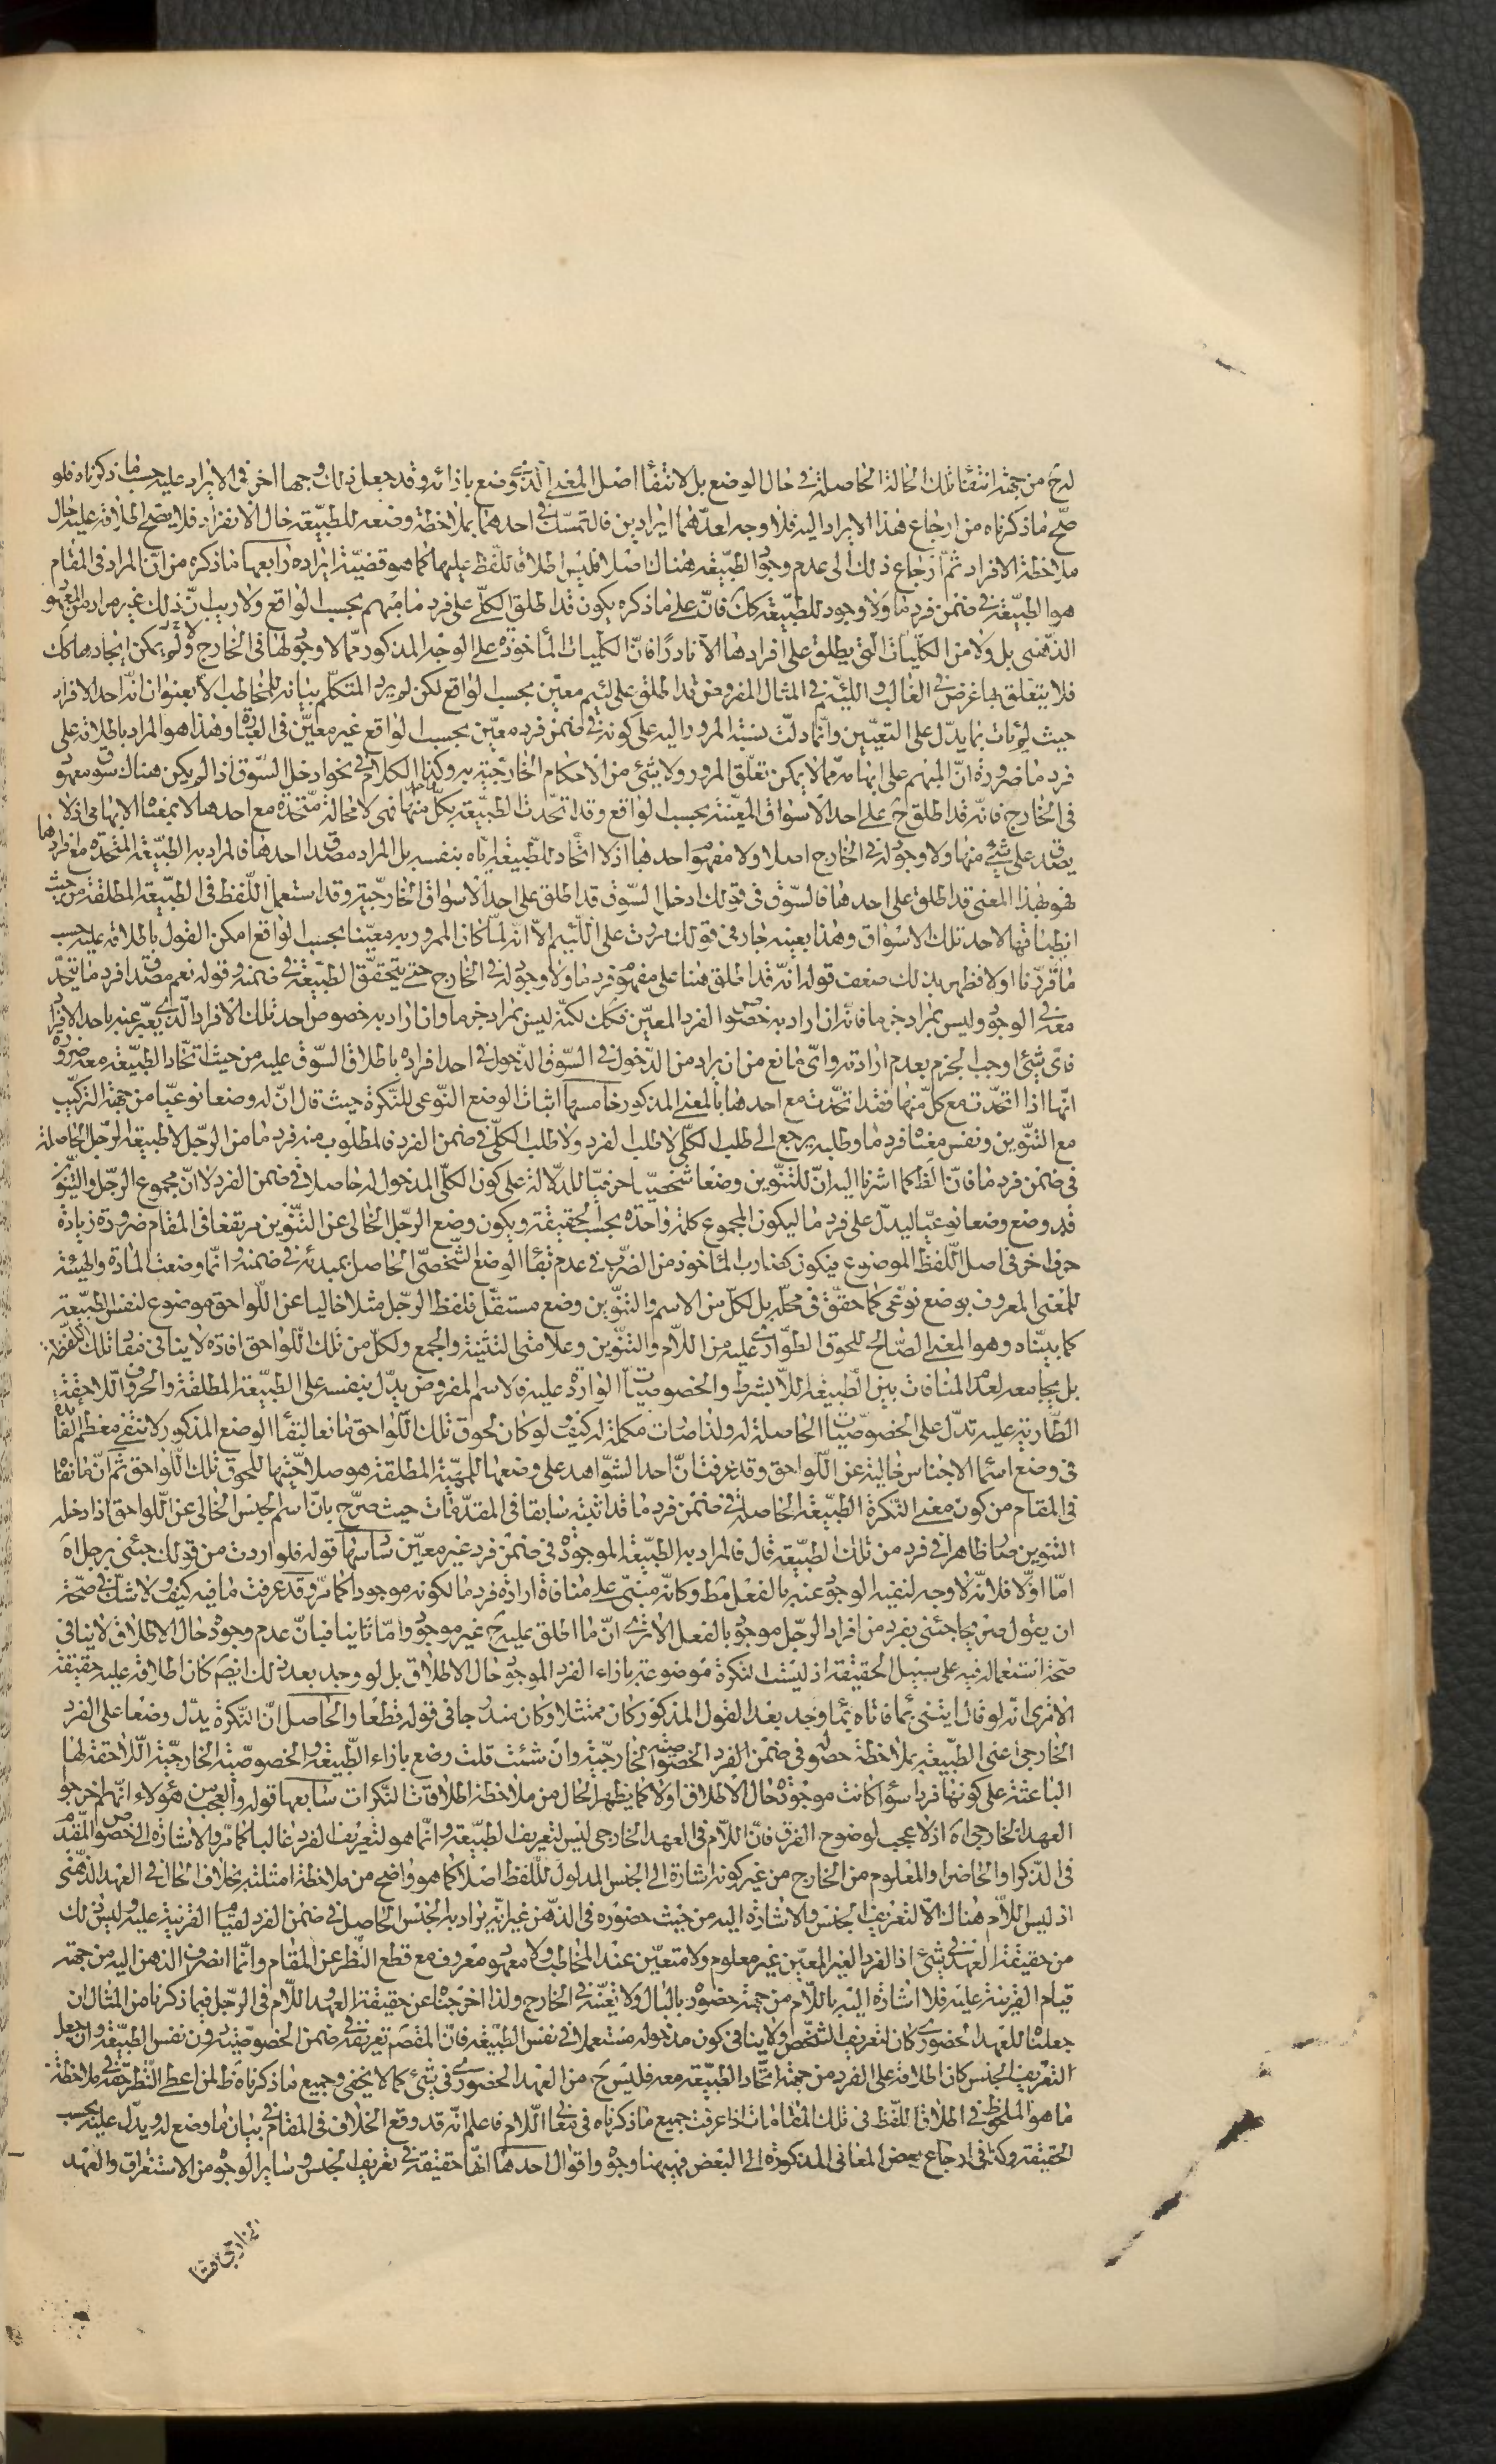 له ح من جهة انتفاء تلك الحالة الحاصلة في حال الوضع بل لانتفاء اصل المعنى الذي وضع بازائه وقد جعل ذلك وجها اخر في الايراد عليه حسبما ذكرناه فلو
صح ما ذكرناه من ارجاع هذا الايراد اليه فلا وجه لعدهما ايرادين فالتمسك في احدهما بملاحظة وضعه للطبيعة حال الانفراد فلا يصح اطلاقه عليه حال
ملاحظة الافراد ثم ارجاع ذلك الى عدم وجود الطبيعة هناك اصلا فليس اطلاق اللفظ عليها كما هو قضية ايراده رابعها ما ذكره من ان المراد في المقام
هو الطبيعة في ضمن فرد ما ولا وجود للطبيعة كك فانه على ما ذكره يكون قد اطلق الكلي على فرد ما مبهم بحسب الواقع ولا ريب ان ذلك غير مراد من المعهود
الذهني بل ولا من الكليات التي يطلق على افرادها الا نادرا فان الكليات المأخوذة على الوجه المذكور مما لا وجود لها في الخارج ولا يمكن ايجادها كك
فلا يتعلق بها غرض في الغالب واللئيم في المثال المفروض قد اطلق على لئيم معين بحسب الواقع لكن لم يرد المتكلم بيانه للمخاطب الا بعنوان انه احد الافراد
حيث لم يات بما يدل على التعيين وانما دلت نسبة المرور اليه على كونه في ضمن فرد معين بحسب الواقع غير معين في العبارة وهذا هو المراد باطلاقه على
فرد ما ضرورة ان المبهم على ابهامه مما لا يمكن تعلق المرور ولا شئ من الاحكام الخارجية به وكذا الكلام في نحو ادخل السوق اذا لم يكن هناك سوق معهود
في الخارج فانه قد اطلق ح على احد الاسواق المعينة بحسب الواقع وقد اتحدت الطبيعة بكل منها فهي لا محالة متحدة مع احدها لا بمعناه الابهامي اذ لا
يصدق على شئ منها ولا وجود له في الخارج اصلا ولا مفهوم احدها اذ لا اتحاد للطبيعة اياه بنفسه بل المراد مصداق احدها فالمراد به الطبيعة المتحدة مع افرادها
فهو بهذا المعنى قد اطلق على احدها فالسوق في قولك ادخل السوق قد اطلق على احد الاسواق الخارجية وقد استعمل اللفظ في الطبيعة المطلقة من حيث
انطباقها لاحد تلك الاسواق وهذا بعينه جار في قولك مررت على اللئيم الا انه لما كان المرور به معينا بحسب الواقع امكن القول باطلاقه عليه حسب
ما قررنا اولا فظهر بذلك ضعف قوله انه قد اطلق هنا على مفهوم فرد ما ولا وجود له في الخارج حتى يتحقق الطبيعة في ضمنه وقوله نعم مصداق فرد ما يتحد
معه في الوجود وليس بمراد جزما فانه ان اراد به خصوص الفرد المعين فكك لكنه ليس بمراد جزما وان اراد به خصوص احد تلك الافراد الذي يعبر عنه باحد الافراد
فاى شئ اوجب الجزم بعدم ارادته واى مانع من ان يراد من الدخول في السوق الدخول في احد افراده باطلاق السوق عليه من حيث اتحاد الطبيعة معه ضرورة
انها اذا اتحدت مع كل منها فقد اتحدت مع احدها بالمعنى المذكور خامسها اثبات الوضع النوعي للنكرة حيث قال ان له وضعا نوعيا من جهة التركيب
مع التنوين ونفس معناه فرد ما وطلبه يرجع الى طلب الكلي لا طلب الفرد ولا طلب الكلي في ضمن الفرد فالمطلوب منه فرد ما من الرجل لا طبيعة الرجل الحاصلة
في ضمن فرد ما فان الظ كما اشرنا اليه ان للتنوين وضعا شخصيا حرفيا للدلالة على كون الكلي المدخول له حاصلا في ضمن الفرد لا ان مجموع الرجل والتنوين
قد وضع وضعا نوعيا ليدل على فرد ما ليكون المجموع كلمة واحدة بحسب الحقيقة ويكون وضع الرجل الخالي عن التنوين مرتفعا في المقام ضرورة زيادة
حرف اخر في اصل اللفظ الموضوع فيكون كضارب المأخوذ من الضرب في عدم بقاء الوضع الشخصي الحاصل بمبدئه في ضمنه وانما وضعت المادة والهيئة
للمعنى المعروف بوضع نوعي كما حقق في محله بل لكل من الاسم والتنوين وضع مستقل فلفظ الرجل مثلا خاليا عن اللواحق موضوع لنفس الطبيعة
كما بيناه وهو المعنى الصالح للحوق الطوارى عليه من اللام والتنوين وعلامتي التثنية والجمع ولكل من تلك اللواحق افادة لا ينافي مفاد تلك اللفظة
بل يجامعه لعدم المنافات بين الطبيعة اللابشرط والخصوصيات الواردة عليه فالاسم المفروض يدل بنفسه على الطبيعة المطلقة والحروف اللاحقة
الطارية عليه تدل على الخصوصيات الحاصلة له ولذا صارت مكملة له كيف ولو كان لحوق تلك اللواحق مانعا لبقاء الوضع المذكور لانتفى معظم الفائدة
في وضع اسماء الاجناس خالية عن اللواحق وقد عرفت ان احد الشواهد على وضعها للمهية المطلقة هو صلاحيتها للحوق تلك اللواحق ثم ان ما نفاه
في المقام من كون معنى النكرة الطبيعة الحاصلة في ضمن فرد ما قد اثبته سابقا في المقدمات حيث صرح بان اسم الجنس الخالي عن اللواحق اذا دخله
التنوين صار ظاهرا في فرد من تلك الطبيعة قال فالمراد به الطبيعة الموجودة في ضمن فرد غير معين سادسها قوله فلو اردت من قولك جئني برجل اه
اما اولا فلانه لا وجه لنفيه الوجود عنه بالفعل مط وكانه مبني على منافاة ارادة فرد ما لكونه موجودا كما مر وقد عرفت ما فيه كيف ولا شك في صحة
ان يقول صريحا جئني بفرد من افراد الرجل موجود بالفعل الا ترى ان ما اطلق عليه ح غير موجود واما ثانيا فبان عدم وجوده حال الاطلاق لا ينافي
صحة استعماله فيه على سبيل الحقيقة اذ ليست النكرة موضوعة بازاء الفرد الموجود حال الاطلاق بل لو وجد بعد ذلك ايضم كان اطلاقه عليه حقيقة
الا ترى انه لو قال ايتني بماء فاتاه بماء وجد بعد القول المذكور كان ممتثلا وكان مندرجا في قوله قطعا والحاصل ان النكرة يدل وضعا على الفرد
الخارجي اعني الطبيعة بملاحظة حصوله في ضمن الفرد الخصوصية الخارجية وان شئت قلت وضع بازاء الطبيعة والخصوصية الخارجية اللاحقة لها
الباعثة على كونها فردا سواء كانت موجودة حال الاطلاق اولا كما يظهر الحال من ملاحظة اطلاقات النكرات سابعها قوله والعجب من هؤلاء انهم اخرجوا
العهد الخارجي اه اذ لا عجب لوضوح الفرق فان اللام في العهد الخارجي ليس لتعريف الطبيعة وانما هو لتعريف الفرد غالبا كما مر والاشارة الى خصوص المقدم
في الذكر او الحاضر او المعلوم من الخارج من غير كونه اشارة الى الجنس المدلول للفظ اصلا كما هو واضح من ملاحظة امثلته بخلاف الحال في العهد الذهني
اذ ليس اللام هناك الا لتعريف الجنس والاشارة اليه من حيث حضوره في الذهن غير انه يراد به الجنس الحاصل في ضمن الفرد لقيام القرينة عليه وليس ذلك
من حقيقة العهد في شئ اذ الفرد الغير المعين غير معلوم ولا متعين عند المخاطب ولا معهود معروف مع قطع النظر عن المقام وانما انصرف الذهن اليه من جهة
قيام القرينة عليه فلا اشارة اليه باللام من جهة حضوره بالبال ولا تعينه في الخارج ولذا اخرجناه عن حقيقة العهد واللام في الرجل فيما ذكرنا من المثال ان
جعلنا للعهد الحضوري كان لتعريف الشخص ولا ينافي كون مدخوله مستعملا في نفس الطبيعة فان المقصم تعريفه في ضمن الخصوصية دون نفس الطبيعة وان جعل
التعريف الجنس كان اطلاقه على الفرد من جهة اتحاد الطبيعة معه فليس ح من العهد الحضوري في شئ كما لا يخفى وجميع ما ذكرناه ظ لمن اعطى النظر حقه في ملاحظة
ما هو الملحوظ في اطلاق اللفظ في تلك المقامات اذا عرفت جميع ما ذكرناه في معاني اللام فاعلم انه قد وقع الخلاف في المقام في بيان ما وضع له ويدل عليه بحسب
الحقيقة وكذا في ارجاع بعض المعاني المذكورة الى البعض فههنا وجوه واقوال احدها انها حقيقة في تعريف الجنس وساير الوجوه من الاستغراق والعهد